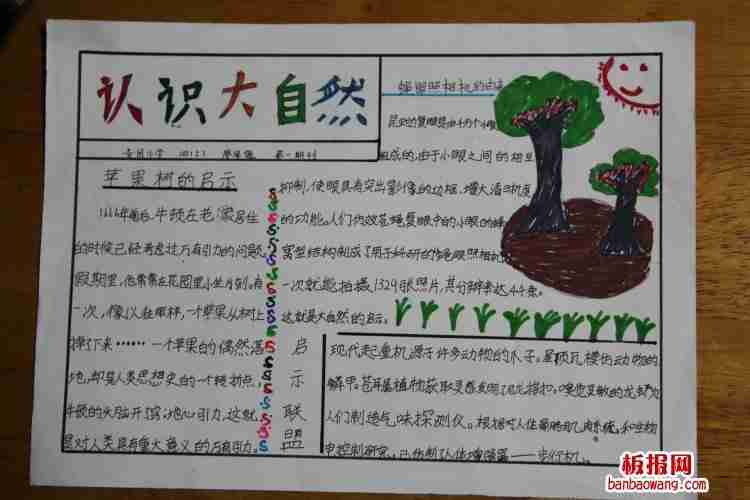 认识大自然
第一期刊
苹果树的启示
1666年前后,牛顿在老家居住
的时候已经考虑过万有引力的问题。
假期里,他常常在花园里小坐片刻。有
一次,像以往那样,一个苹果从树上
掉下来……一个苹果的偶然落
地,却是人类思想史的一个转折点,
牛顿的头脑开了窍:地心引力。这就
是对人类具有重大意义的万有引力。
照相机的
昆虫的复眼是由千万个小眼
组成的,由于小眼之间的相互
抑制,使眼具有突出影像的边框,增大清晰度
的功能。人们仿效苍蝇复眼中的小眼的蜂
窝型结构制成了用于科研的蝇眼照相机
一次就能拍摄1329张照片,其分辨率达4千条。
这就是大自然的启示。
启示联盟
现代起重机源于许多动物的爪子。屋顶瓦楞仿动物的
鳞甲。苍耳属植物获取灵感发明了尼龙搭扣。嗅觉灵敏的龙虾为
人们制造气味探测仪。根据对人体骨骼肌肉系统和生物
电控制研究,已仿制了人体增强器——步行机。
板报网
banbaowang.com